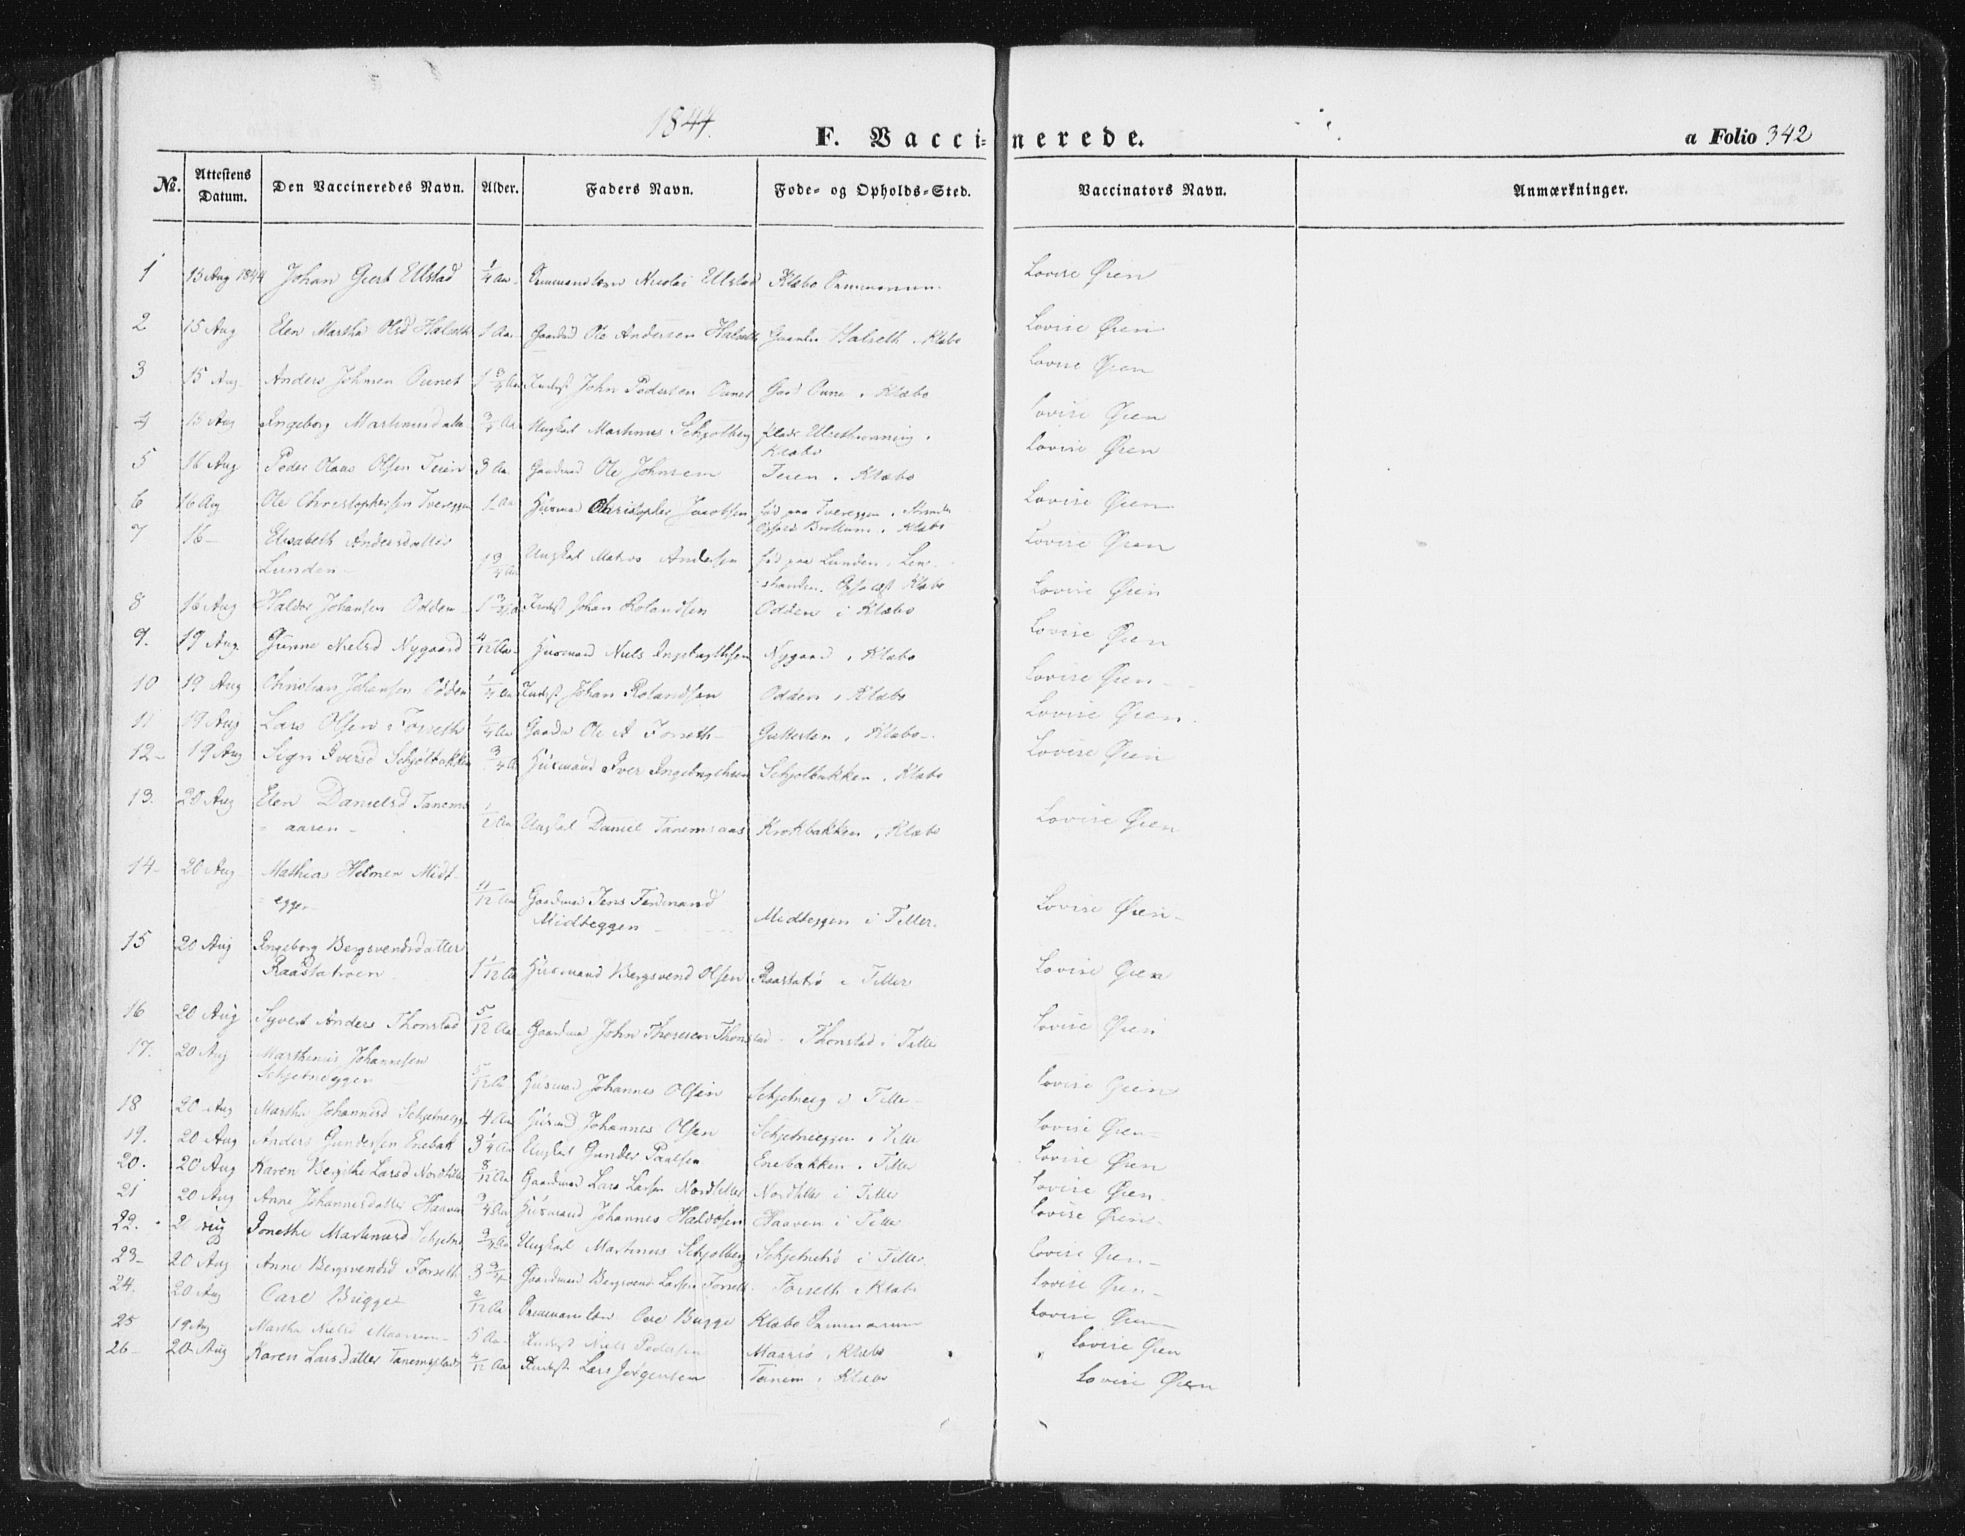 1844.
F. Vaccinerede.
a Folio 342
No. Attestens Datum. Den Vaccineredes Navn. Alder. Faders Navn. Føde- og Opholds-Sted. Vaccinators Navn. Anmærkninger.
1 13 Aug 1844 Johan Gjert Ulstad 1/4 Aar Nicolai Ulstad Klæbo Lovise Øien
2 15 Aug Elen Martha Olsd Halseth 1 Aar Gaardmd Ole Andersen Halseth Halseth i Klæbo Lovise Øien
3 15 Aug Anders Johnsen Ounet 1 3/4 Aar Inderst John Pedersen Ounet Gaard Oune i Klæbo Lovise Øien
4 15 Aug Ingeborg Martinusdatter 3/4 Aar Ungkal Martinus Schjølberg Klæbo Lovise Øien
5 16 Aug Peder Olaus Olsen Teien 3 Aar Gaardmd Ole Johnsen Teien i Klæbo Lovise Øien
6 16 Aug Ole Christophersen Tvereggen 1 Aar Husmand Christopher Jacobsen fød paa Tvereggen i Strinden
Ophold Brøttum i Klæbo Lovise Øien
7 16 - Elisabeth Andersdatter
Lunden - 1 3/4 Aar Ungkal Andersen fød paa Lunden i Len-
stranden. Klæbo Lovise Øien
8 16 Aug Haldor Johansen Odden 1 3/4 Aar Inderst Johan Rolandsen Odden i Klæbo Lovise Øien
9. 19 Aug. Gunne Nielsd Nygaard 4/12 Aar Husmand Niels Ingebrigtsen Nygaard i Klæbo Lovise Øien
10 19 Aug Christian Johansen Odden 1/4 Aar Inderst Johan Rolandsen Odden i Klæbo Lovise Øien
11 19 Aug Lars Olsen Forseth 1/4 Aar Gaardm Ole A Forseth i Klæbo Lovise Øien
12 - 19 Aug Sigri Iversd Schjølbakken 3/4 A Husmand Iver Ingebrigtsen Schjølbakken i Klæbo Lovise Øien
13. 20 Aug Elen Danielsd Tanems
aaren - Ungkal Daniel Tanemsaas Krokbakken i Klæbo Lovise Øien
14 - 20 Aug Mathias Helmer Midt-
eggen 11/12 Aar Gaardmd Jens Ferdinand
Midteggen Midteggen i Tiller. Lovise Øien
15 20 Aug Ingeborg Bergsvendsdatter
Raastatroen 1 1/12 Aar Husmand Bergsvend Olsen Raastatrø i Tiller Lovise Øien
16 20 Aug Syvert Anders Thonstad 5/12 Aar Gaardmd John Thoresen Thonstad Thonstad i Tiller Lovise Øien
17. 20 Aug Marthinus Johannesen
Schjetneggen 5/12 Aar Husmd Johannes Olsen Schjetneeg i Tiller Lovise Øien
18 20 Aug Martha Johannesd Schjetneegg 4 Aar Husmd Johannes Olsen Schjetneeggen i Tiller Lovise Øien
19. 20 Aug Anders Gundersen Enebak 3 1/4 Aar Ungkal Gunder Paulsen Enebakken i Tiller Lovise Øien
20. 20 Aug Karen Bergithe Larsd Nordtiller 8/12 Aar Gaardmd Lars Larsen Nordtiller Nordtiller i Tiller Lovise Øien
21 20 Aug Anne Johannesdatter Haaven 3/4 Aar Husmand Johannes Haldosen Haaven i Tiller Lovise Øien
22. Aug Jonetha Martinusd Schjetne 3/4 Aar Ungkal Martinus Schjølberg Schjetnetrø i Tiller Lovise Øien
23 - 20 Aug Anne Bergsvendsd Forseth 3 3/4 Gaardmand Bergsvend Larsen Forseth Forseth i Klæbo Lovise Øien
24. 20 Aug Carl Brigge 2/12 Aar Ove Bugge Klæbo Lovise Øien
25 19 Aug Martha Nielsd 5 Aar Inderst Niels Pedersen i Klæbo Lovise Øien
26 - 20 Aug Karen Larsdatter Tanemsplads 4/12 Aar Inderst Lars Jørgensen Tanem i Klæbo Lovise Øien